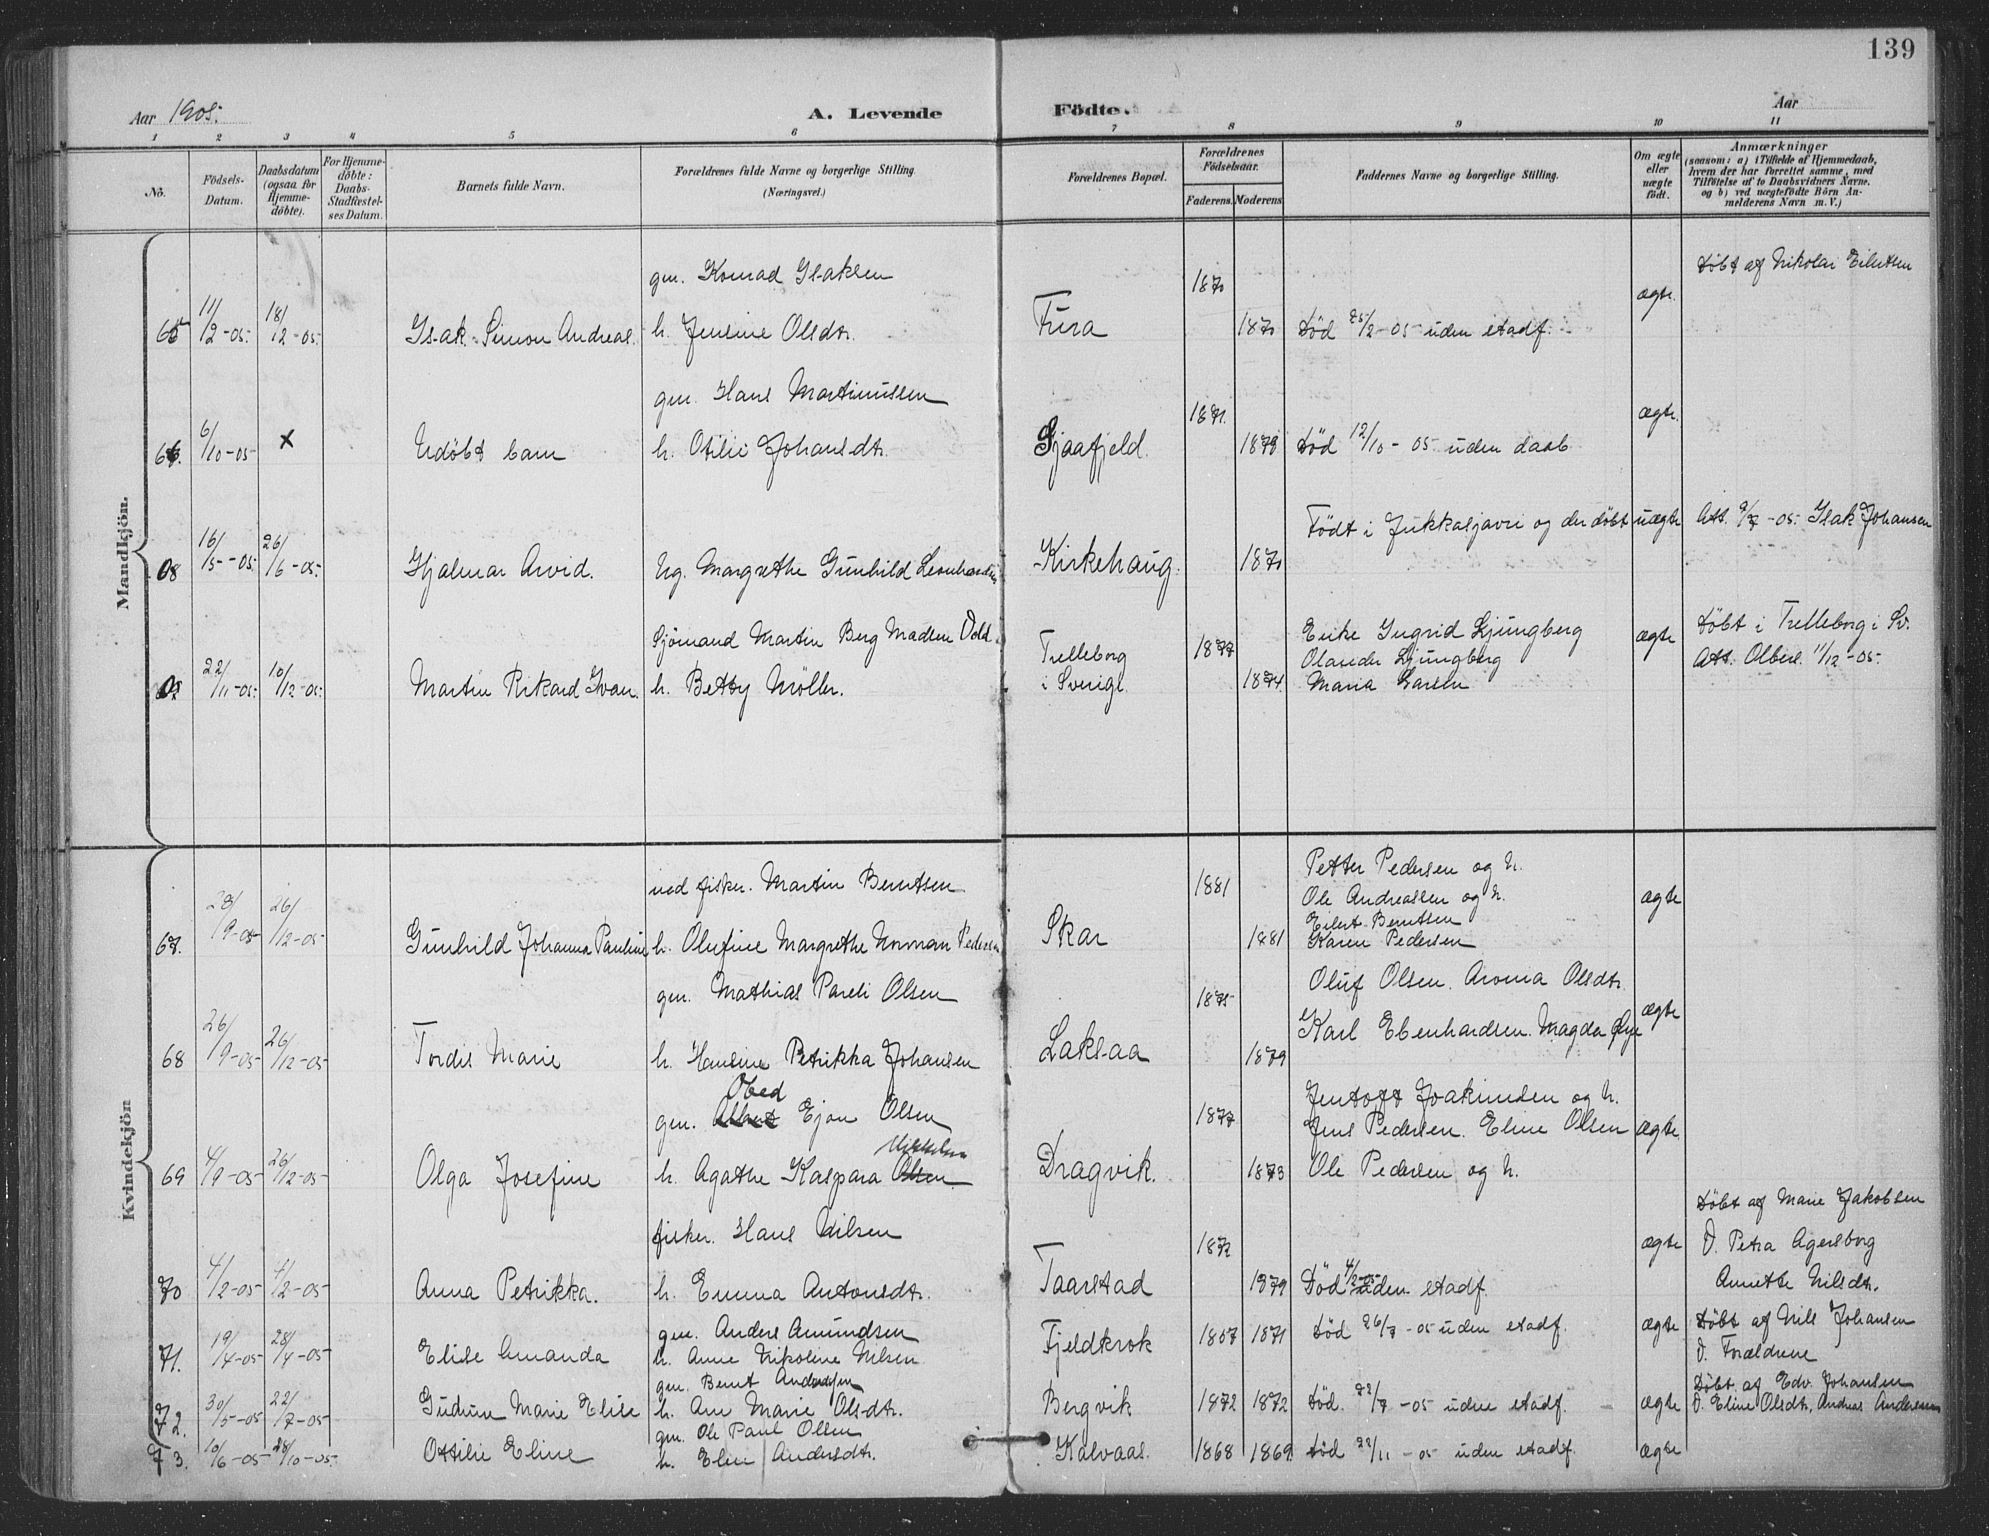 139
Aar 1905.
A. Levende Födte.
Aar
1 2 3 4 5 6 7 8 9 10 11
No.
Födsels-Datum.
Daabsdatum (ogsaa for Hjemme-döbte).
For Hjemme-döbte: Daabs-Stadfæstel-ses Datum.
Barnets fulde Navn.
Forældrenes fulde Navne og borgerlige Stilling. (Næringsvei.)
Forældrenes Bopæl.
Forældrenes Födselsaar.
Faderens. Moderens.
Faddernes Navne og borgerlige Stilling.
Om ægte eller uægte født.
Anmærkninger
(saasom: a) i Tilfælde af Hjemmedaab, hvem der har forrettet samme, med Tilföielse af to Daabsvidners Navne, og b) ved uægtefödte Börn An-melderens Navn m. V.)
Mandkjön.
gm. Konrad Isaksen 1870 ægte. Døbt af Nikolai Eilertsen
65 11/12-05. 18/12-05. Isak Simon Andreas. h. Jensine Olsdtr. Fura 1870 Død 25/2-05 uden stadf.
gm. Hans Martinussen 1871. ægte.
66. 6/10-05 x Udøbt barn h. Otilie Johansdtr. Sjaafjeld. 1879 Død 12/10-05 uden daab
Født i Jukkasjarvi og der døbt uægte Att. 9/7-05. Isak Johansen
08 16/5-05. 26/6-05. Hjalmar Arvid. Ug. Margrethe Gunhild Leonhardsdtr Kirkehaug. 1870
Sjømand Martin Berg Madsen Vold. 1877 ægte Døbt i Trelleborg i Sv.
22/11-05. 10/12-05. Martin Rikard Ivan. h. Betty Møller. Trelleborg i Sverige. 1874 Enke Ingrid Ljungberg
Olander Ljungberg
Maria Larsen
Att. 11/12-05.
Kvindekjön
ved fisker. Martin Berntsen 1881 Petter Pedersen og h.
Ole Andreassen og h. ægte
Eilert Berntsen
67. 28/9-05 26/12-05 Gunhild Johanna Pauline h. Olufine Margrethe Norman Pedersen Skar 1881 Karen Pedersen
gm. Mathias Pareli Olsen 1875 Oluf Olsen. Arona Olsdtr. ægte
68 26/9-05 26/12-05 Tordis Marie h. Hansine Petrikka Johansen Laksaa 1879 Karl Ebenhardsen. Magda Øye
Obed
gm. Ejon Olsen 1877 Jentoft Joakimsen og h.
Jens Pedersen. Eline Olsen ægte.
Mikkelsen
69 4/9-05 26/12-05 Olga Josefine h. Agathe Kaspara Olsen Dragvik. 1873 Ole Pedersen og h.
Døbt af Marie Jakobsen
fisker. Hans Nilsen 1872 ægte V. Petra Agersborg
70 4/2-05 4/2-05 Anna Petrikka. h. Emma Antonsdtr. Taarstad 1879 Død 4/2-05 uden stadf. Annette Nilsdtr.
71. 19/4-05 28/4-05 Elise Amanda gm. Anders Amundsen
h. Anne Nikoline Nilsen Fjeldkrok 1867 1871 Død 26/7-05 uden stadf. ægte Døbt af Nils Johansen
V. Forældrene
72. 30/5-05 22/7-05 Gudrun Marie Elise gm. Bernt Andersen
h. Ane Marie Olsdtr. Bergvik 1872 1872 Død. 22/7-05 uden stadf. ægte Døbt af Edv. Johansen
V. Eline Olsdtr, Andreas Andersen
73. 10/6-05 28/10-05. Ottilie Eline gm. Ole Paul Olsen
h. Elen Andersdtr. Kalvaas. 1868 1869 Død 22/11-05 uden stadf. ægte